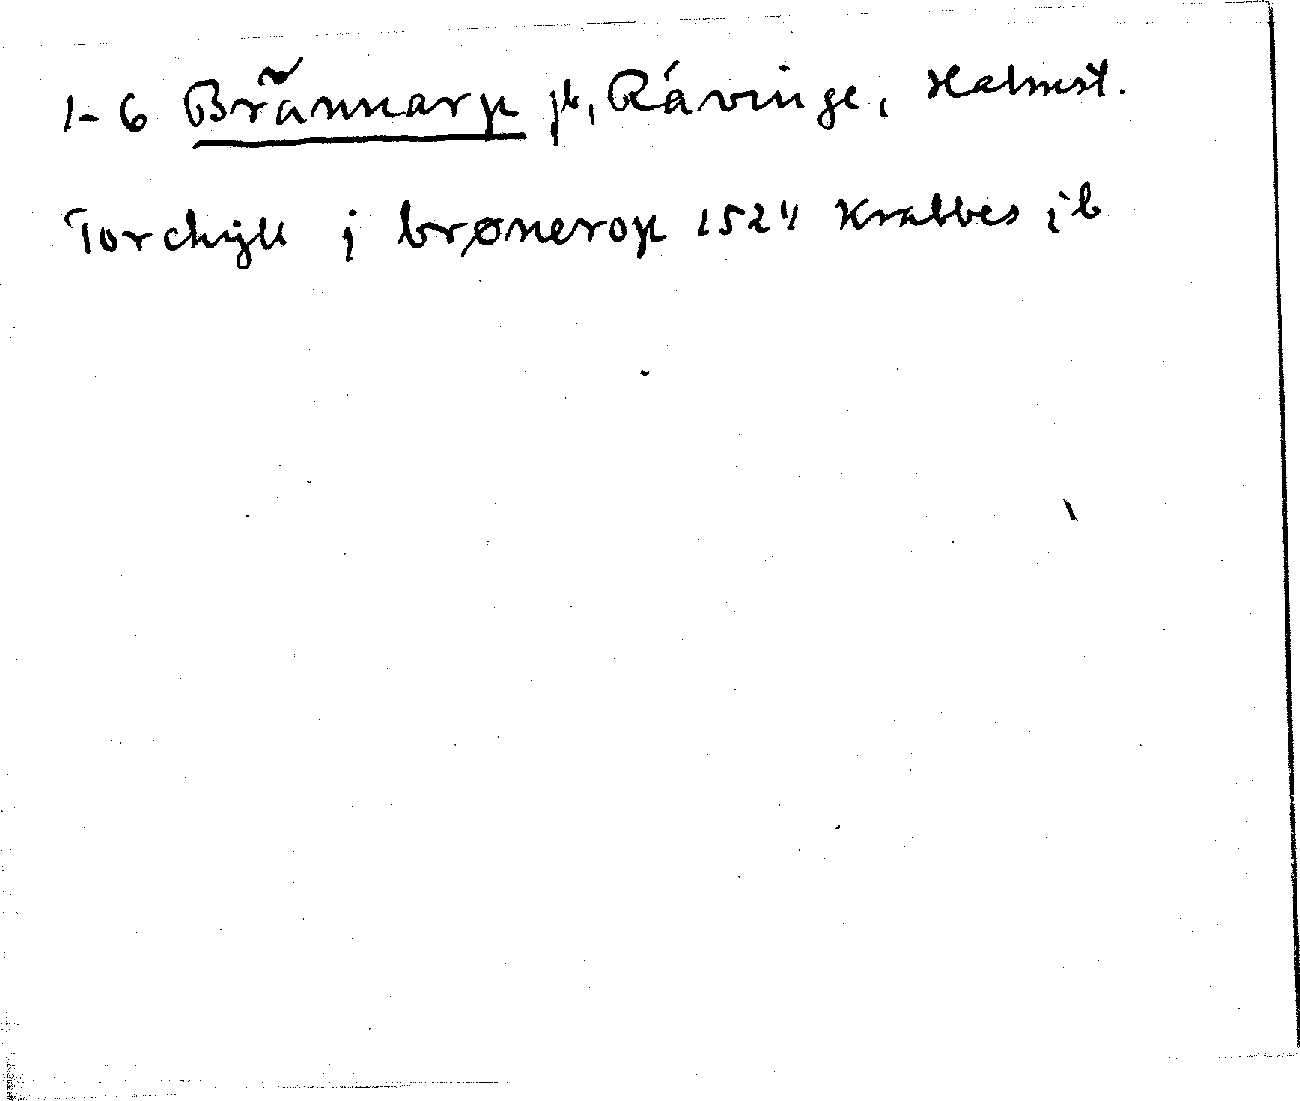 1-6 Brännarp jb, Rávinge, Halmst.
Torchyll j brønerop 1524 Krabbes jb